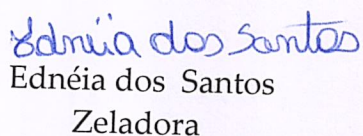 Ednéia dos Santos
Ednéia dos Santos
Zeladora